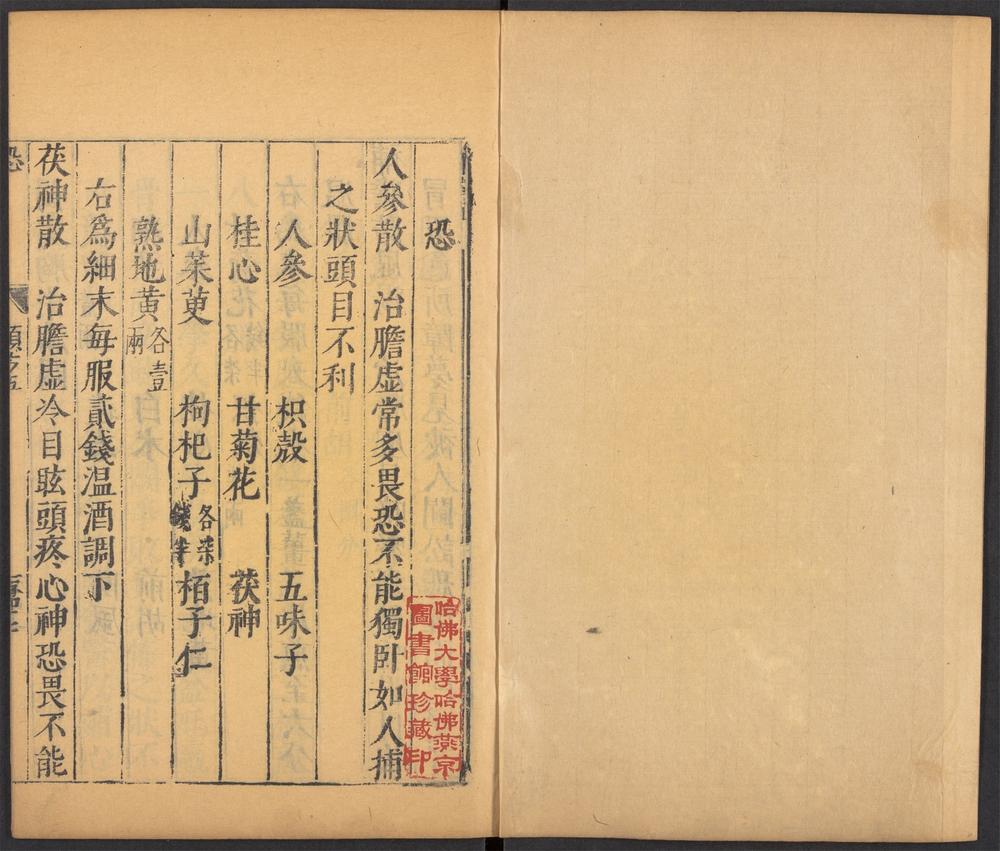 恐
人參散　治膽虛常多畏恐不能獨卧如人捕
之狀頭目不利
人參　枳殼　五味子
桂心　甘菊花　茯神
山茱萸　枸杞子各柒錢半　栢子仁
熟地黃各壹兩
右爲細末每服貳錢温酒調下
茯神散　治膽虛冷目眩頭疼心神恐畏不能
恐
類之五
哈佛大學哈佛燕京
圖書館珍藏印